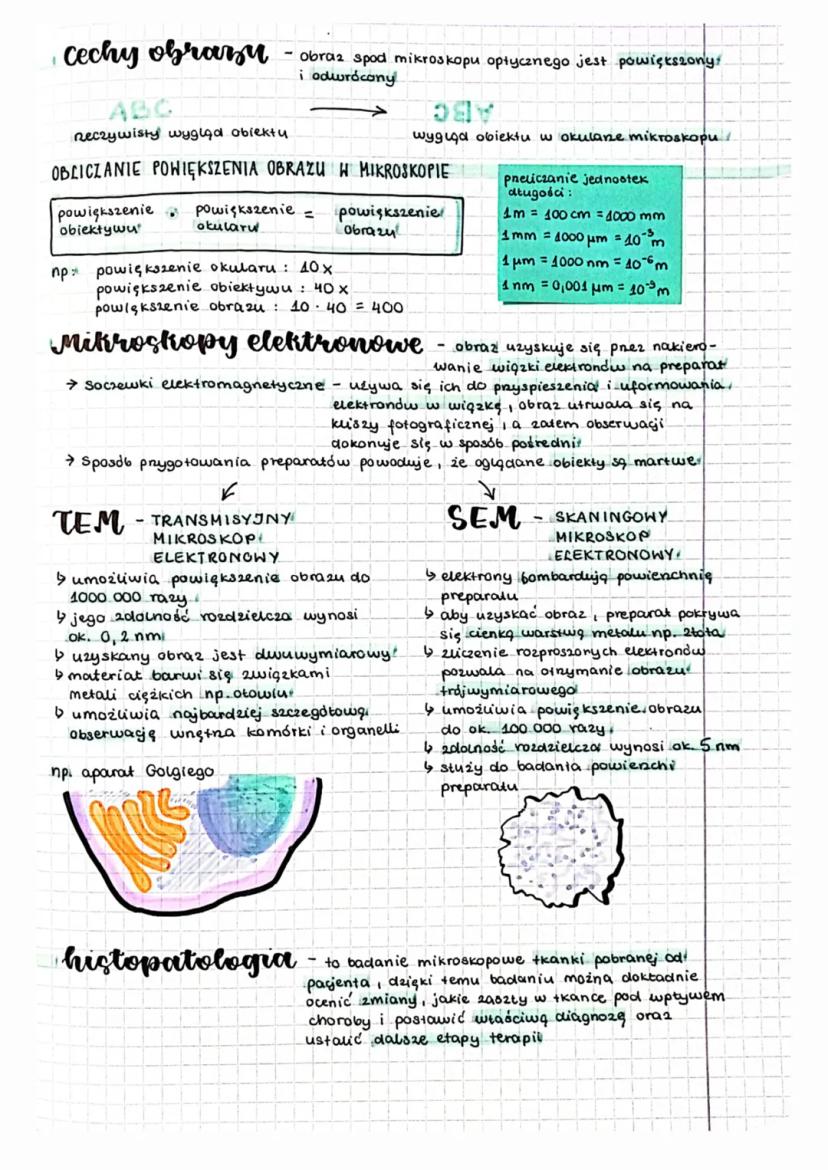 cechy obrazu - obraz spod mikroskopu optycznego jest powiększony
i odwrócony
ABC → ABC
rzeczywisty wygląd obiektu wygląd obiektu w okularze mikroskopu
OBLICZANIE POWIĘKSZENIA OBRAZU W MIKROSKOPIE
powiększenie obiektywu · powiększenie okularu = powiększenie obrazu
przeliczanie jednostek
długości:
1m = 100 cm = 1000 mm
1mm = 1000 μm = 10⁻³m
1 μm = 1000 nm = 10⁻⁶m
1 nm = 0,001 μm = 10⁻⁹m
np: powiększenie okularu : 10x
powiększenie obiektywu : 40x
powiększenie obrazu : 10 · 40 = 400
Mikroskopy elektronowe - obraz uzyskuje się przez nakiero-
wanie wiązki elektronów na preparat
→ Soczewki elektromagnetyczne - używa się ich do przyspieszenia i uformowania
elektronów w wiązkę, obraz utrwala się na
kliszy fotograficznej, a zatem obserwacji
dokonuje się w sposób pośredni
→ Sposób przygotowania preparatów powoduje, że oglądane obiekty są martwe
TEM - TRANSMISYJNY
MIKROSKOP
ELEKTRONOWY
↳ umożliwia powiększenie obrazu do
1000 000 razy
↳ jego zdolność rozdzielcza wynosi
ok. 0,2 nm
↳ uzyskany obraz jest dwuwymiarowy
↳ materiał barwi się związkami
metali ciężkich np. ołowiu
↳ umożliwia najbardziej szczegółową
obserwację wnętrza komórki i organelli
np. aparat Golgiego
SEM - SKANINGOWY
MIKROSKOP
ELEKTRONOWY
↳ elektrony bombardują powierzchnię
preparatu
↳ aby uzyskać obraz, preparat pokrywa
się cienką warstwą metalu np. złota
↳ zliczenie rozproszonych elektronów
pozwala na otrzymanie obrazu
trójwymiarowego
↳ umożliwia powiększenie obrazu
do ok. 100 000 razy
↳ zdolność rozdzielcza wynosi ok. 5 nm
↳ służy do badania powierzchi
preparatu
histopatologia - to badanie mikroskopowe tkanki pobranej od
pacjenta, dzięki temu badaniu można dokładnie
ocenić zmiany, jakie zaszły w tkance pod wpływem
choroby i postawić właściwą diagnozę oraz
ustalić dalsze etapy terapii